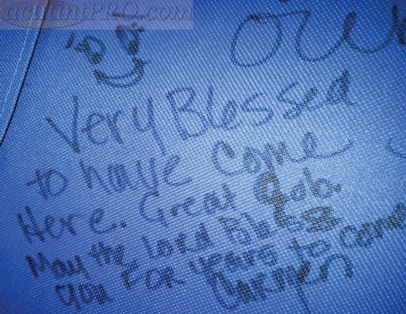 acutintPRO.com
our
Very Blessed
to have come
Here. Great Job.
May the Lord Bless
you For years to come
Carmen